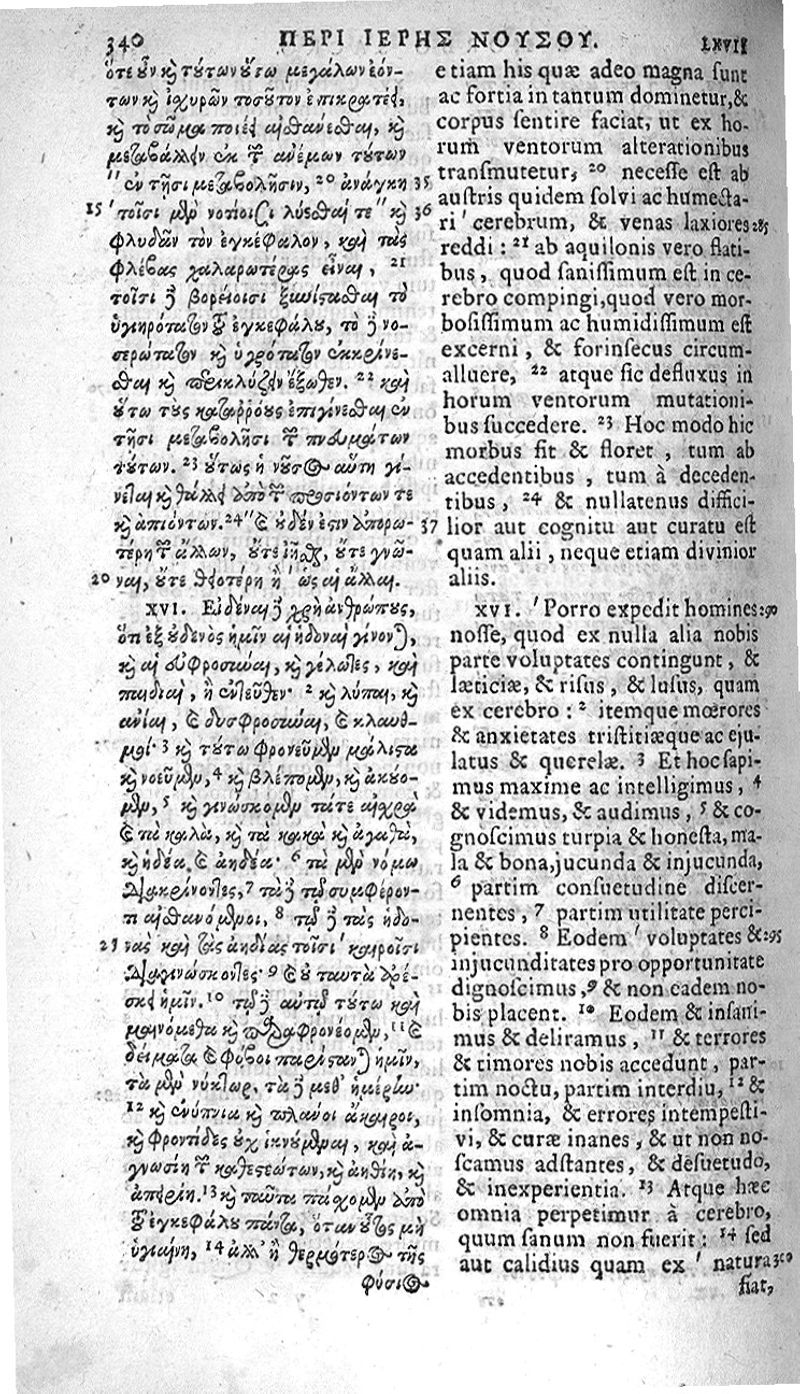 340 ΠΕΡΙ ΙΕΡΗΣ ΝΟΥΣΟΥ. LXVII
ὅτε οὖν καὶ τούτων οὕτω μεγάλων ἐόν-
των καὶ ἰσχυρῶν τοσοῦτον ἐπικρατέει,
καὶ τὸ σῶμα ποιέει αἰσθάνεσθαι, καὶ
μεταβάλλειν ἐκ τῶν ἀνέμων τούτων
" ἐν τῇσι μεταβολῇσιν, 20 ἀνάγκη 35
15 ' τοῖσι μὲν νοτίοισι λύεσθαί τε " καὶ 36
φλυδᾶν τὸν ἐγκέφαλον, καὶ τὰς
φλέβας χαλαρωτέρας εἶναι, 21
τοῖσι δὲ βορείοισι ξυνίστασθαι τὸ
ὑγιηρότατον τοῦ ἐγκεφάλου, τὸ δὲ νο-
σερώτατον καὶ ὑγρότατον ἐκκρίνε-
σθαι καὶ περικλύζειν ἔξωθεν. 22 καὶ
οὕτω τοὺς καταῤῥόους ἐπιγίνεσθαι ἐν
τῇσι μεταβολῇσι τῶν πνευμάτων
τούτων. 23 οὕτως ἡ νοῦσος αὕτη γί-
νεται καὶ θάλλει ἀπὸ τῶν προσιόντων τε
καὶ ἀπιόντων. 24 " καὶ οὐδέν ἐστιν ἀπορω- 37
τέρη τῶν ἄλλων, οὔτε ἰῆσθαι, οὔτε γνῶ-
20 ναι, οὔτε θειοτέρη ἢ ' ὡς αἱ ἄλλαι.
XVI. Εἰδέναι δὲ χρὴ ἀνθρώπους,
ὅτι ἐξ οὐδενὸς ἡμῖν αἱ ἡδοναὶ γίνονται,
καὶ αἱ εὐφροσύναι, καὶ γέλωτες, καὶ
παιδιαὶ, ἢ ἐντεῦθεν· 2 καὶ λύπαι, καὶ
ἀνίαι, καὶ δυσφροσύναι, καὶ κλαυθ-
μοί· 3 καὶ τούτῳ φρονεῦμεν μάλιστα
καὶ νοεῦμεν, 4 καὶ βλέπομεν, καὶ ἀκούο-
μεν, 5 καὶ γινώσκομεν τά τε αἰσχρὰ
καὶ τὰ καλὰ, καὶ τὰ κακὰ καὶ ἀγαθὰ,
καὶ ἡδέα καὶ ἀηδέα· 6 τὰ μὲν νόμῳ
διακρίνοντες, 7 τὰ δὲ τῷ συμφέρον-
τι αἰσθανόμενοι, 8 τῷ δὲ τὰς ἡδο-
25 νὰς καὶ τὰς ἀηδίας τοῖσι ' καιροῖσι
διαγινώσκοντες· 9 καὶ οὐ ταυτὰ ἀρέ-
σκει ἡμῖν. 10 τῷ δὲ αὐτῷ τούτῳ καὶ
μαινόμεθα καὶ παραφρονέομεν, 11 καὶ
δείματα καὶ φόβοι παρίστανται ἡμῖν,
τὰ μὲν νύκτωρ, τὰ δὲ μεθ' ἡμέρην·
12 καὶ ἐνύπνια καὶ πλάνοι ἄκαιροι,
καὶ φροντίδες οὐχ ἱκνούμεναι, καὶ ἀ-
γνωσίη τῶν καθεστεώτων, καὶ ἀηθίη, καὶ
ἀπειρίη. 13 καὶ ταῦτα πάσχομεν ἀπὸ
τοῦ ἐγκεφάλου πάντα, ὅταν οὗτος μὴ
ὑγιαίνῃ, 14 ἀλλ' ἢ θερμότερος τῆς
φύσιος
etiam his quæ adeo magna sunt
ac fortia in tantum dominetur, &
corpus sentire faciat, ut ex ho-
rum ventorum alterationibus
transmutetur, 20 necesse est ab
austris quidem solvi ac humecta-
ri ' cerebrum, & venas laxiores 285
reddi : 21 ab aquilonis vero flati-
bus, quod sanissimum est in ce-
rebro compingi, quod vero mor-
bosissimum ac humidissimum est
excerni, & forinsecus circum-
alluere, 22 atque sic defluxus in
horum ventorum mutationi-
bus succedere. 23 Hoc modo hic
morbus fit & floret, tum ab
accedentibus, tum à deceden-
tibus, 24 & nullatenus diffici-
lior aut cognitu aut curatu est
quam alii, neque etiam divinior
aliis.
XVI. ' Porro expedit homines 290
nosse, quod ex nulla alia nobis
parte voluptates contingunt, &
læticiæ, & risus, & lusus, quam
ex cerebro : 2 itemque mœrores
& anxietates tristitiæque ac eju-
latus & querelæ. 3 Et hoc sapi-
mus maxime ac intelligimus, 4
& videmus, & audimus, 5 & co-
gnoscimus turpia & honesta, ma-
la & bona, jucunda & injucunda,
6 partim consuetudine discer-
nentes, 7 partim utilitate perci-
pientes. 8 Eodem ' voluptates & 295
injucunditates pro opportunitate
dignoscimus, 9 & non eadem no-
bis placent. 10 Eodem & insani-
mus & deliramus, 11 & terrores
& timores nobis accedunt, par-
tim noctu, partim interdiu, 12 &
insomnia, & errores intempesti-
vi, & curæ inanes, & ut non no-
scamus adstantes, & desuetudo,
& inexperientia. 13 Atque hæc
omnia perpetimur à cerebro,
quum sanum non fuerit : 14 sed
aut calidius quam ex ' natura 300
fiat,